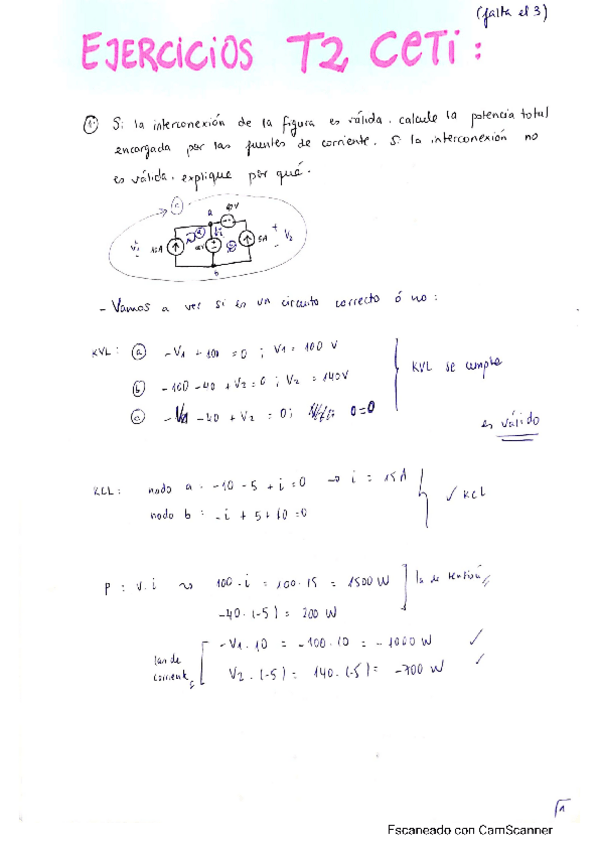 (falta el 3)
EJERCICIOS T2 CETI :
① Si la interconexión de la figura es válida. calcule la potencia total
encargada por las fuentes de corriente. Si la interconexión no
es válida. explique por qué.
c
a 40V
V1 10A i 5A V2
b
- Vamos a ver si es un circuito correcto ó no :
KVL : ⓐ - V1 + 100 = 0 ; V1 = 100 V
ⓑ - 100 - 40 + V2 = 0 ; V2 = 140V
ⓒ - V1 - 40 + V2 = 0 ; 0=0
KVL se cumple
es válido
KCL : nodo a : -10 - 5 + i = 0 → i = 15 A
nodo b : - i + 5 + 10 = 0
✓ KCL
P : V. i ~> 100 . i = 100 . 15 = 1500 W
-40 . (-5) = 200 W
las de
corriente
- V1 . 10 = -100 . 10 = - 1000 W ✓
V2 . (-5) = 140 . (-5) = -700 W ✓
1
Escaneado con CamScanner